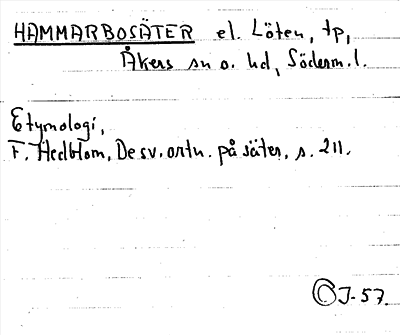 HAMMARBOSÄTER el. Löten, tp,
Åkers sn o. hd, Söderm. l.
Etymologi,
F. Hedblom, De sv. ortn. på säter, s. 211.
OJ-57.